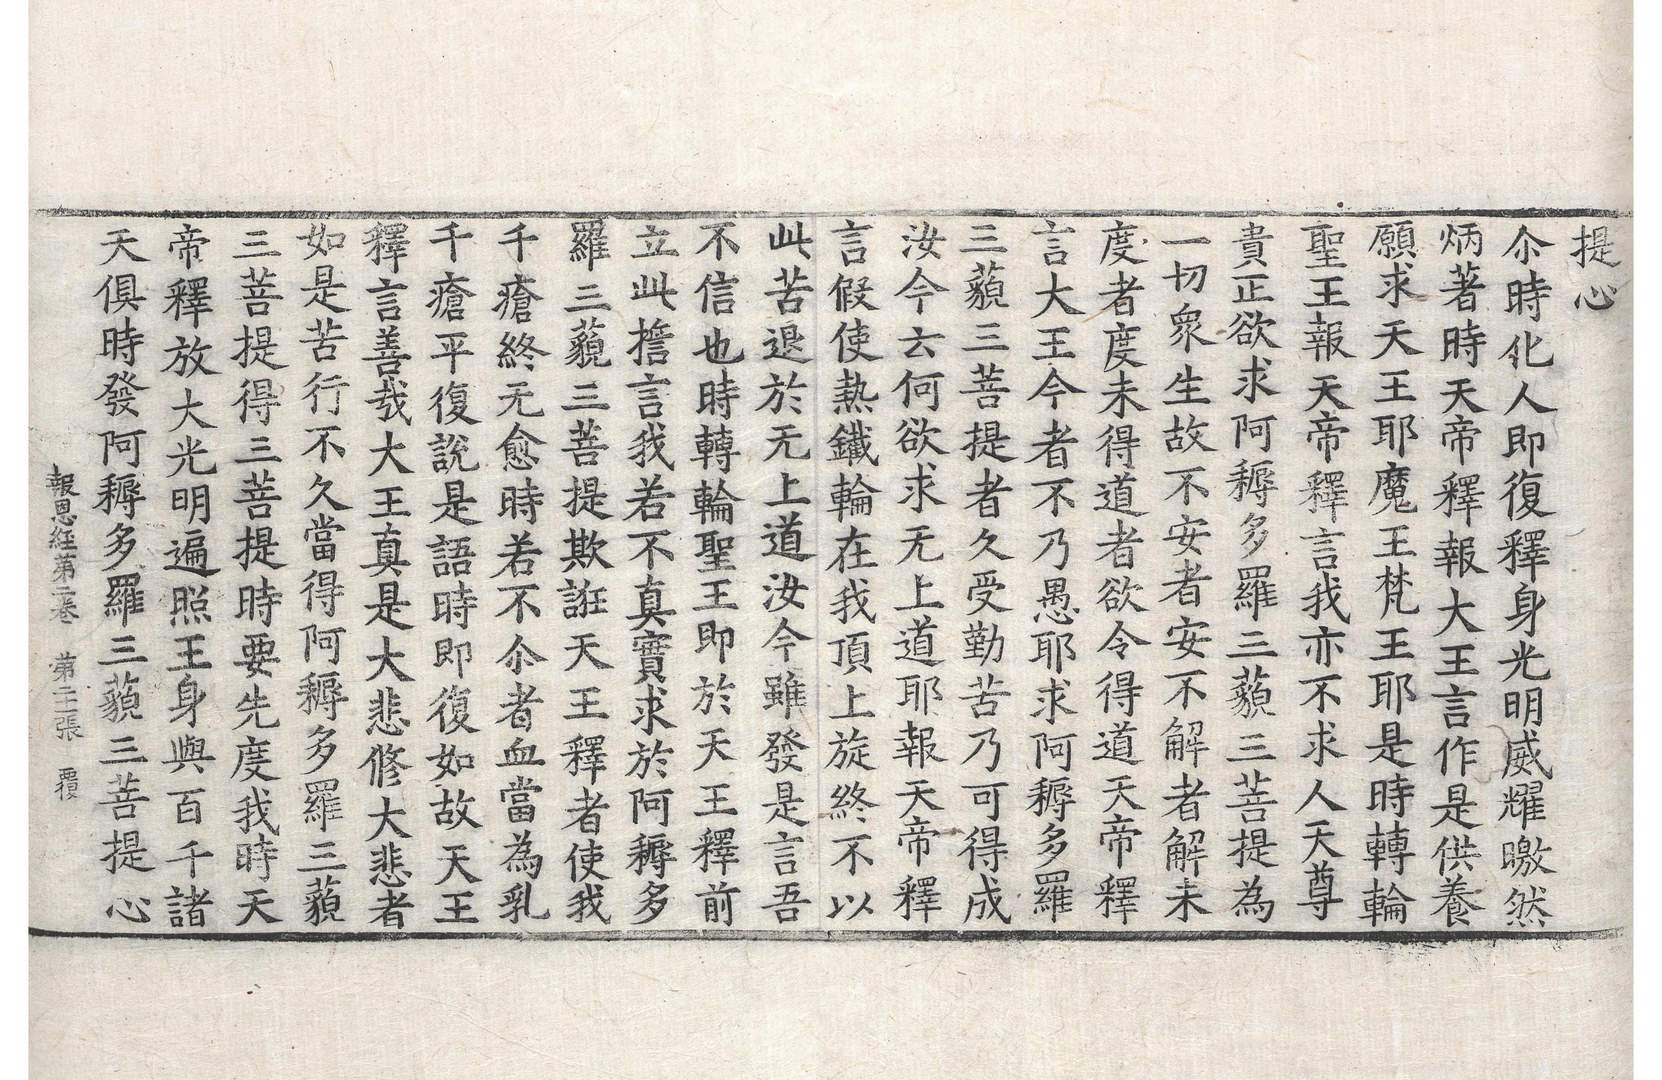 提心
尒時化人即復釋身光明威耀曒然
炳著時天帝釋報大王言作是供養
願求天王耶魔王梵王耶是時轉輪
聖王報天帝釋言我亦不求人天尊
貴正欲求阿耨多羅三藐三菩提為
一切衆生故不安者安不解者解未
度者度未得道者欲令得道天帝釋
言大王今者不乃愚耶求阿耨多羅
三藐三菩提者久受勤苦乃可得成
汝今云何欲求无上道耶報天帝釋
言假使熱鐵輪在我頂上旋終不以
此苦退於无上道汝今雖發是言吾
不信也時轉輪聖王即於天王釋前
立此擔言我若不真實求於阿耨多
羅三藐三菩提欺誑天王釋者使我
千瘡終无愈時若不尒者血當為乳
千瘡平復說是語時即復如故天王
釋言善哉大王真是大悲修大悲者
如是苦行不久當得阿耨多羅三藐
三菩提得三菩提時要先度我時天
帝釋放大光明遍照王身與百千諸
天俱時發阿耨多羅三藐三菩提心
報恩経第二卷 第二十張 覆